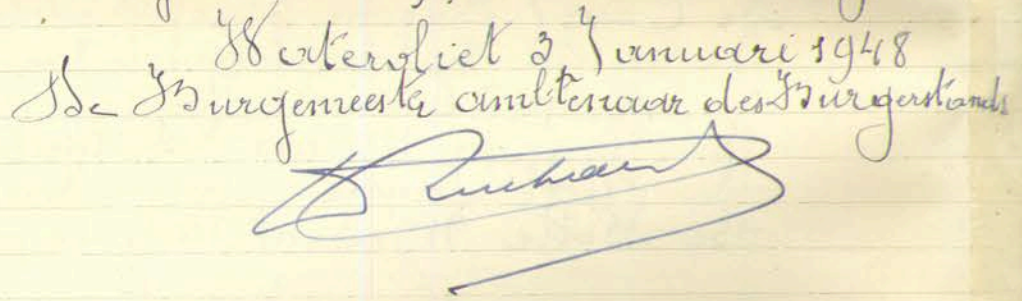 Watervliet 3 Januari 1948
De Burgemeester ambtenaar des Burgerstands